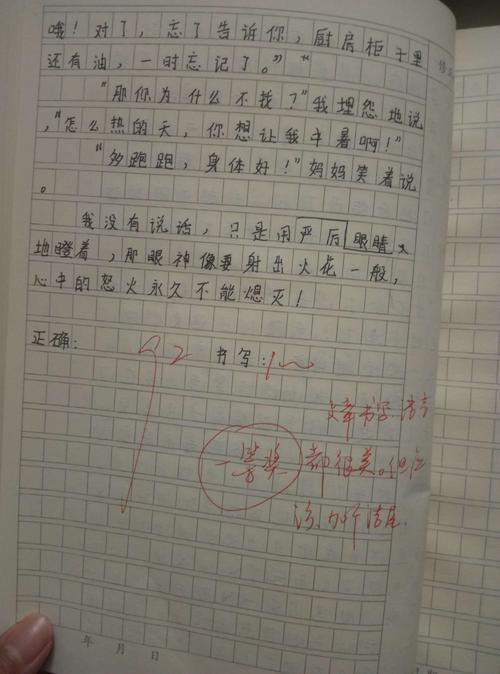 哦！对了，忘了告诉你，厨房柜子里
还有油，一时忘记了。”“
“那你为什么不找？”我埋怨地说
，“怎么热的天，你想让我中暑啊！”
“多跑跑，身体好！”妈妈笑着说
。
我没有说话，只是用严厉眼睛
地瞪着，那眼神像要射出火花一般，
心中的怒火永久不能熄灭！
正确：92 书写：
文章书写、语言
一等奖 都很美。但应
结尾.
年 月 日